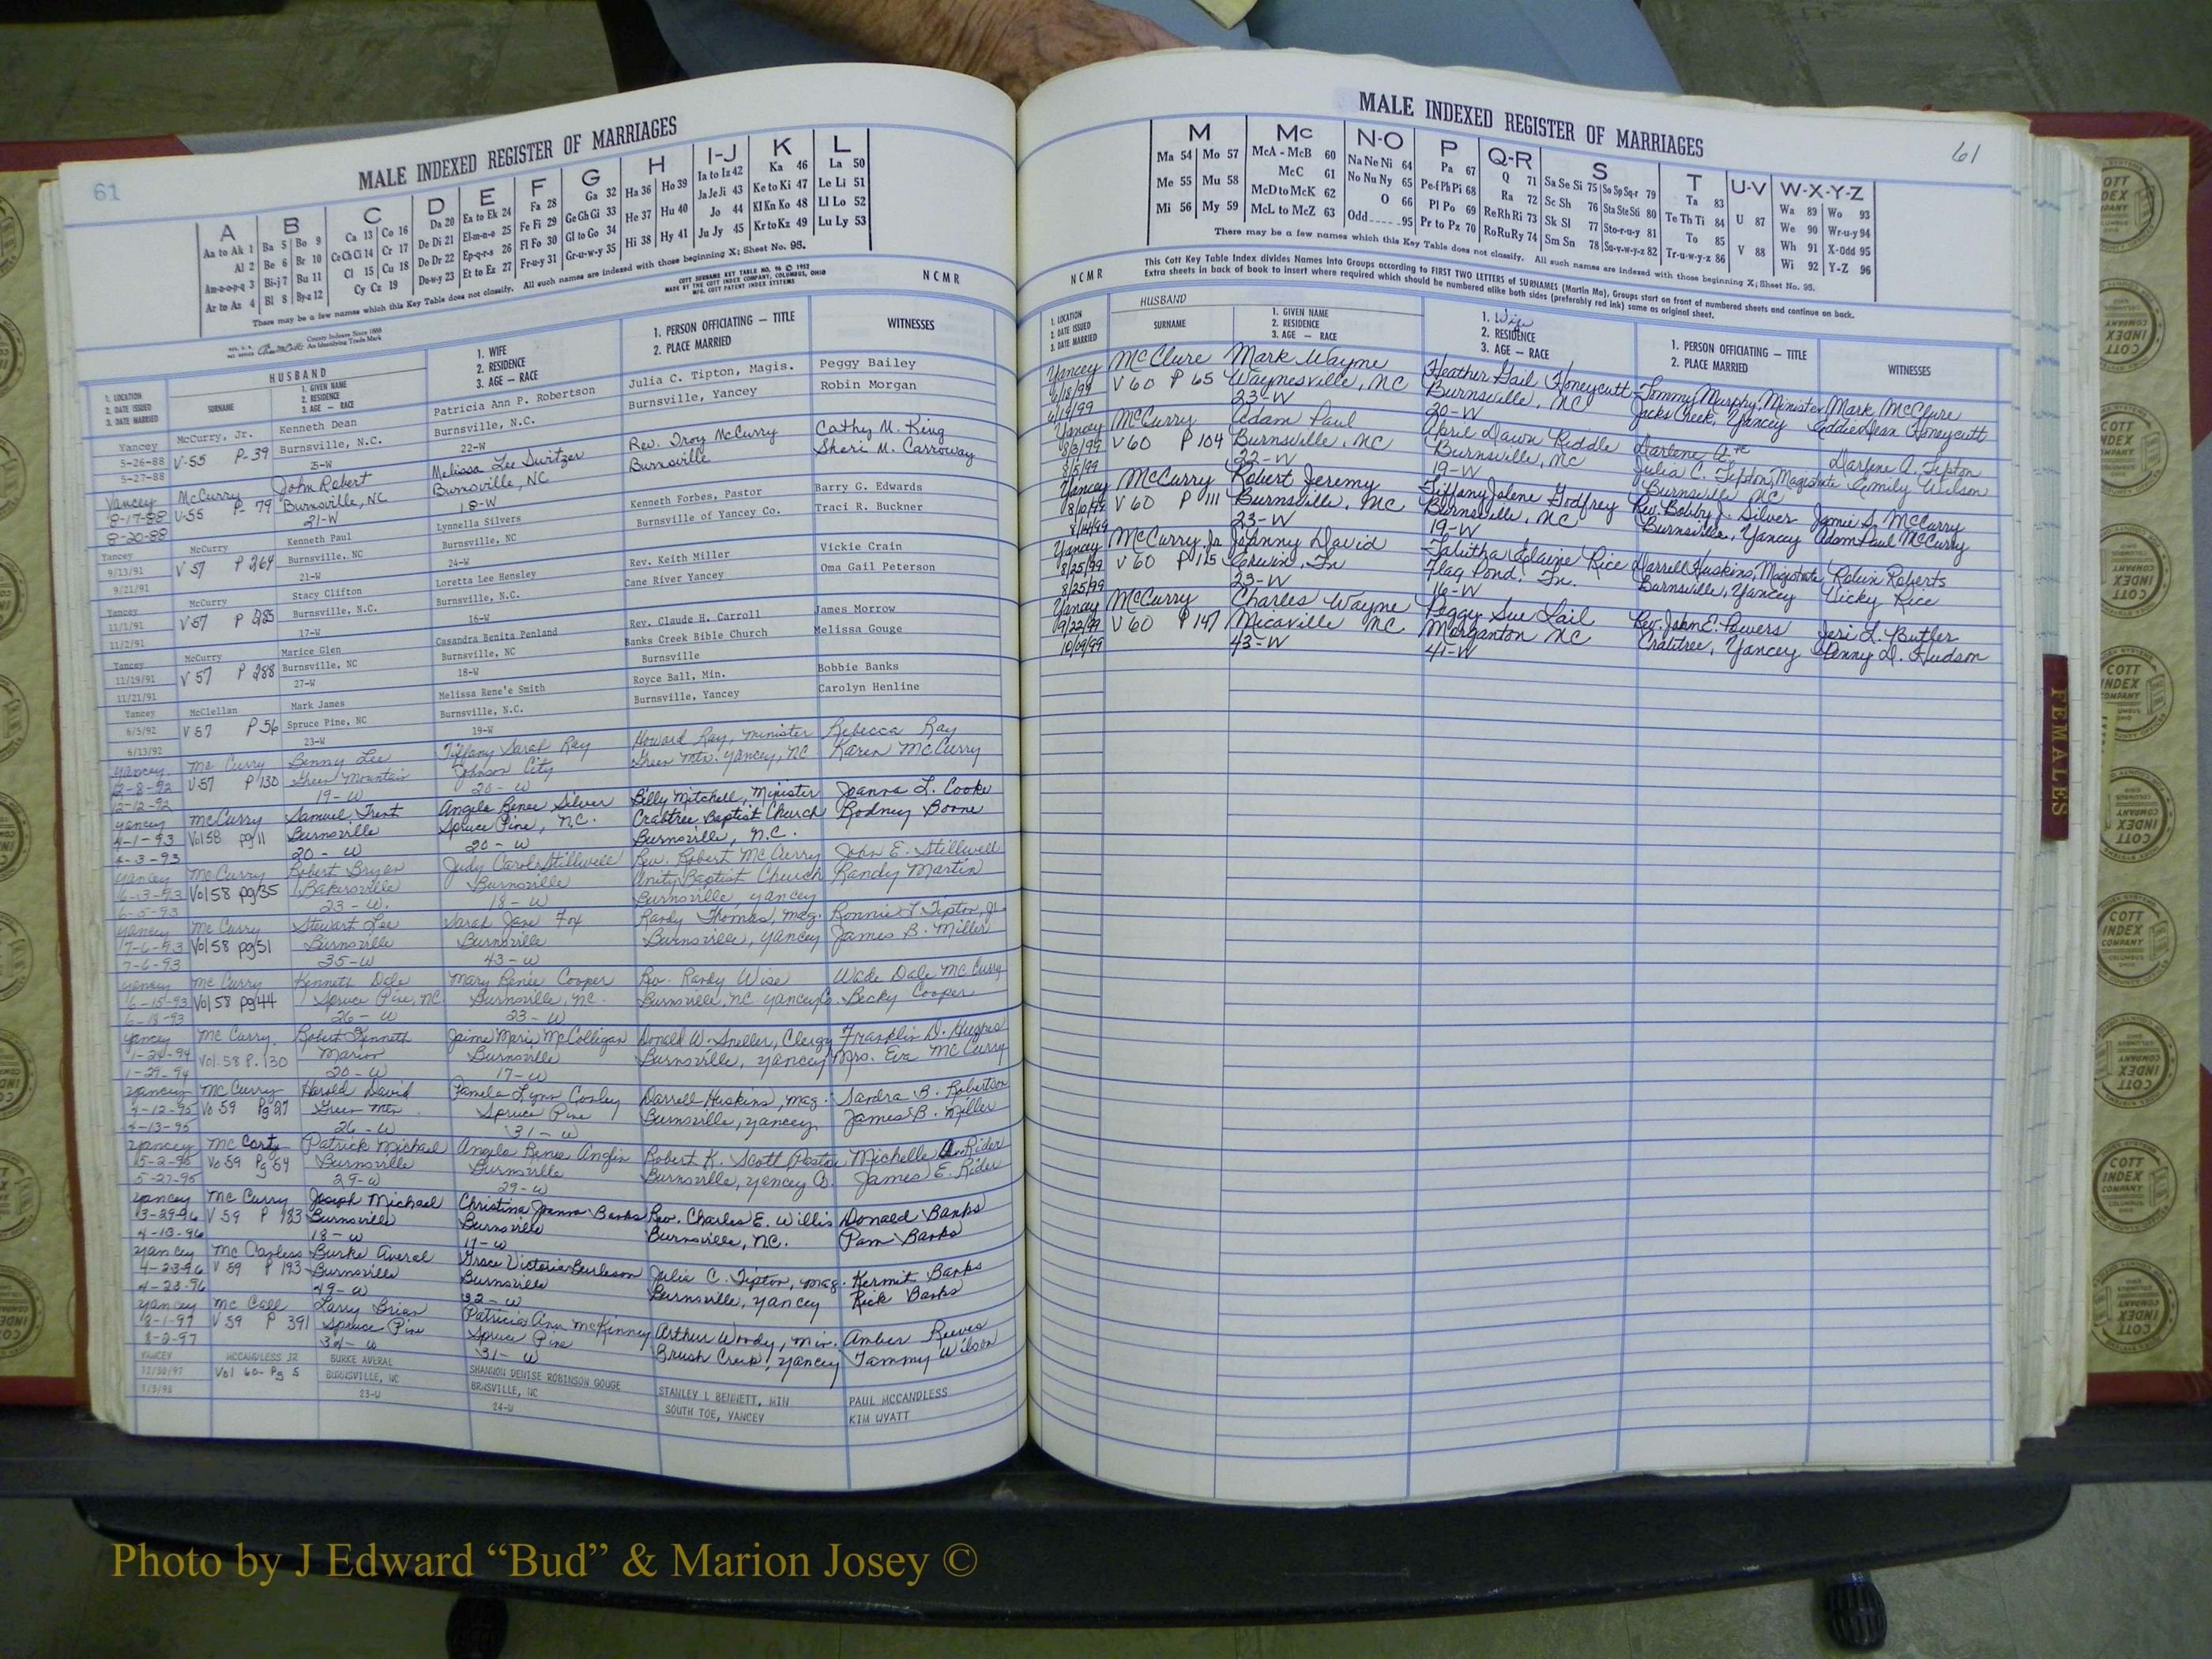 61
MALE INDEXED REGISTER OF MARRIAGES
A B C D E F G H I-J K L
Aa to Ak 1 Ba 5 Bo 9 Ca 13 Co 16 Da 20 Ea to Ek 24 Fa 28 Ga 32 Ha 36 Ho 39 Ia to Iz 42 Ka 46 La 50
Al 2 Be 6 Br 10 Ce Ch Ci 14 Cr 17 De Di 21 El-m-n-o 25 Fe Fi 29 Ge Gh Gi 33 He 37 Hu 40 Ja Je Ji 43 Ke to Ki 47 Le Li 51
Am-n-o-p-q 3 Bi-j 7 Bu 11 Cl 15 Cu 18 Do Dr 22 Ep-q-r-s 26 Fl Fo 30 Gl to Go 34 Hi 38 Hy 41 Jo 44 Kl Kn Ko 48 Ll Lo 52
Ar to Az 4 Bl 8 By-z 12 Cy Cz 19 Du-w-y 23 Et to Ez 27 Fr-u-y 31 Gr-u-w-y 35 Ju Jy 45 Kr to Kz 49 Lu Ly 53
There may be a few names which this Key Table does not classify. All such names are indexed with those beginning X; Sheet No. 95.
COTT SURNAME KEY TABLE NO. 96 © 1952
MADE BY THE COTT INDEX COMPANY, COLUMBUS, OHIO
MFG. COTT PATENT INDEX SYSTEMS
NCMR
County Indexes Since 1888
An Identifying Trade Mark
HUSBAND
1. LOCATION
2. DATE ISSUED
3. DATE MARRIED
SURNAME
1. GIVEN NAME
2. RESIDENCE
3. AGE — RACE
1. WIFE
2. RESIDENCE
3. AGE — RACE
1. PERSON OFFICIATING — TITLE
2. PLACE MARRIED
WITNESSES
Yancey McCurry, Jr. Kenneth Dean Patricia Ann P. Robertson Julia C. Tipton, Magis. Peggy Bailey
5-26-88 V-55 P-39 Burnsville, N.C. Burnsville, N.C. Burnsville, Yancey Robin Morgan
5-27-88 25-W 22-W
Yancey McCurry John Robert Melissa Lee Switzer Rev. Troy McCurry Cathy M. King
8-17-88 V-55 P- 79 Burnsville, NC Burnsville, NC Burnsville Sheri M. Carroway
8-20-88 21-W 18-W
Yancey McCurry Kenneth Paul Lynnella Silvers Kenneth Forbes, Pastor Barry G. Edwards
9/13/91 V 57 P 264 Burnsville, NC Burnsville, NC Burnsville of Yancey Co. Traci R. Buckner
9/21/91 21-W 24-W
Yancey McCurry Stacy Clifton Loretta Lee Hensley Rev. Keith Miller Vickie Crain
11/1/91 V 57 P 285 Burnsville, N.C. Burnsville, N.C. Cane River Yancey Oma Gail Peterson
11/2/91 17-W 16-W
Yancey McCurry Marice Glen Casandra Benita Penland Rev. Claude H. Carroll James Morrow
11/19/91 V 57 P 288 Burnsville, NC Burnsville, NC Banks Creek Bible Church Melissa Gouge
11/21/91 27-W 18-W Burnsville
Yancey McClellan Mark James Melissa Rene'e Smith Royce Ball, Min. Bobbie Banks
6/5/92 V 57 P 56 Spruce Pine, NC Burnsville, N.C. Burnsville, Yancey Carolyn Henline
6/13/92 23-W 19-W
Yancey McCurry Benny Lee Tiffany Sarah Ray Howard Ray, minister Rebecca Ray
12-8-92 V-57 P 130 Green Mountain Johnson City Green Mtn. Yancey, NC Karen McCurry
12-12-92 19-W 20-W
Yancey McCurry Samuel Trent Angela Renee Silver Billy Mitchell, Minister Joanna L. Cooke
4-1-93 Vol 58 pg 11 Burnsville Spruce Pine, N.C. Crabtree Baptist Church Rodney Boone
4-3-93 20-W 20-W Burnsville, N.C.
Yancey McCurry Robert Bryan Judy Carol Stillwell Rev. Robert McCurry John E. Stillwell
6-3-93 Vol 58 pg 35 Bakersville Burnsville Unity Baptist Church Randy Martin
6-5-93 23-W. 18-W Burnsville, Yancey
Yancey McCurry Stewart Lee Sarah Jane Fox Randy Thomas, Mag. Ronnie F. Tipton, Jr.
7-6-93 Vol 58 pg 51 Burnsville Burnsville Burnsville, Yancey James B. Miller
7-6-93 35-W 43-W
Yancey McCurry Kenneth Dale Mary Renee Cooper Rev. Randy Wise Wade Dale McCurry
6-15-93 Vol 58 pg 44 Spruce Pine, NC Burnsville, NC. Burnsville, NC Yancey Co. Becky Cooper
6-18-93 26-W 23-W
Yancey McCurry Robert Kenneth Jaime Marie McColligan Donald W. Sneller, Clergy Franklin D. Hughes
1-24-94 Vol. 58 P. 130 Marion Burnsville Burnsville, Yancey Mrs. Eva McCurry
1-29-94 20-W 17-W
Yancey McCurry Harold David Pamela Lynn Conley Darrell Huskins, Mag. Sandra B. Robertson
4-12-95 Vo 59 Pg 27 Green Mtn. Spruce Pine Burnsville, Yancey James B. Miller
4-13-95 26-W 31-W
Yancey McCarty Patrick Michael Angela Renee Anglin Robert K. Scott Pastor Michelle D. Rider
5-2-95 Vo 59 Pg 54 Burnsville Burnsville Burnsville, Yancey Co. James E. Rider
5-27-95 29-W 29-W
Yancey McCurry Joseph Michael Christina Joanna Banks Rev. Charles E. Willis Donald Banks
3-29-96 V 59 P 183 Burnsville Burnsville Burnsville, N.C. Pam Banks
4-13-96 18-W 17-W
Yancey McCanless Burke Averal Grace Victoria Burleson Julia C. Tipton, Mag. Kermit Banks
4-23-96 V 59 P 193 Burnsville Burnsville Burnsville, Yancey Rick Banks
4-23-96 49-W 32-W
Yancey McCall Larry Brian Patricia Ann McKinney Arthur Woody, Min. Amber Reeves
8-1-97 V 59 P 391 Spruce Pine Spruce Pine Brush Creek, Yancey Tammy Wilson
8-2-97 34-W 31-W
YANCEY MCCANDLESS JR BURKE AVERAL SHANNON DENISE ROBINSON GOUGE STANLEY L BENNETT, MIN PAUL MCCANDLESS
12/30/97 Vol 60- Pg 5 BURNSVILLE, NC BRNSVILLE, NC SOUTH TOE, YANCEY KIM WYATT
1/3/98 23-W 24-W
MALE INDEXED REGISTER OF MARRIAGES
61
M Mc N-O P Q-R S T U-V W-X-Y-Z
Ma 54 Mo 57 McA - McB 60 Na Ne Ni 64 Pa 67 Q 71 Sa Se Si 75 So Sp Sq-r 79 Ta 83 U 87 Wa 89 Wo 93
Me 55 Mu 58 McC 61 No Nu Ny 65 Pe-f Ph Pi 68 Ra 72 Sc Sh 76 Sta Ste Sti 80 Te Th Ti 84 V 88 We 90 Wr-u-y 94
Mi 56 My 59 McD to McK 62 O 66 Pl Po 69 Re Rh Ri 73 Sk Sl 77 Sto-r-u-y 81 To 85 Wh 91 X-Odd 95
McL to McZ 63 Odd 95 Pr to Pz 70 Ro Ru Ry 74 Sm Sn 78 Su-v-w-y-z 82 Tr-u-w-y-z 86 Wi 92 Y-Z 96
There may be a few names which this Key Table does not classify. All such names are indexed with those beginning X; Sheet No. 95.
NCMR
This Cott Key Table Index divides Names into Groups according to FIRST TWO LETTERS of SURNAMES (Martin Ma). Groups start on front of numbered sheets and continue on back.
Extra sheets in back of book to insert where required which should be numbered alike both sides (preferably red ink) same as original sheet.
HUSBAND
1. LOCATION
2. DATE ISSUED
3. DATE MARRIED
SURNAME
1. GIVEN NAME
2. RESIDENCE
3. AGE — RACE
1. Wife
2. RESIDENCE
3. AGE — RACE
1. PERSON OFFICIATING — TITLE
2. PLACE MARRIED
WITNESSES
Yancey McClure Mark Wayne Heather Gail Honeycutt Tommy Murphy, Minister Mark McClure
6/18/99 V 60 P 65 Waynesville, NC Burnsville, NC Jacks Creek, Yancey Eddie Dean Honeycutt
6/19/99 23-W 20-W
Yancey McCurry Adam Paul April Dawn Riddle Darlene A Darlene A. Tipton
8/3/99 V 60 P 104 Burnsville, NC Burnsville, NC Julia C. Tipton, Magistrate Emily Wilson
8/5/99 22-W 19-W Burnsville NC
Yancey McCurry Robert Jeremy Tiffany Jolene Godfrey Rev. Bobby J. Silver Jamie S. McCurry
8/10/99 V 60 P 111 Burnsville, NC Burnsville, NC Burnsville, Yancey Adam Paul McCurry
8/14/99 23-W 19-W
Yancey McCurry Jr Johnny David Tabitha Elaine Rice Darrell Huskins, Magistrate Robin Roberts
8/25/99 V 60 P 125 Erwin, Tn Flag Pond, Tn. Burnsville, Yancey Vicky Rice
8/25/99 23-W 16-W
Yancey McCurry Charles Wayne Peggy Sue Lail Rev. John E. Powers Jeri L. Butler
9/22/99 V 60 P 147 Micaville NC Morganton NC Crabtree, Yancey Penny D. Hudson
10/09/99 43-W 41-W
FEMALES
COTT INDEX COMPANY COLUMBUS OHIO
Photo by J Edward “Bud” & Marion Josey ©